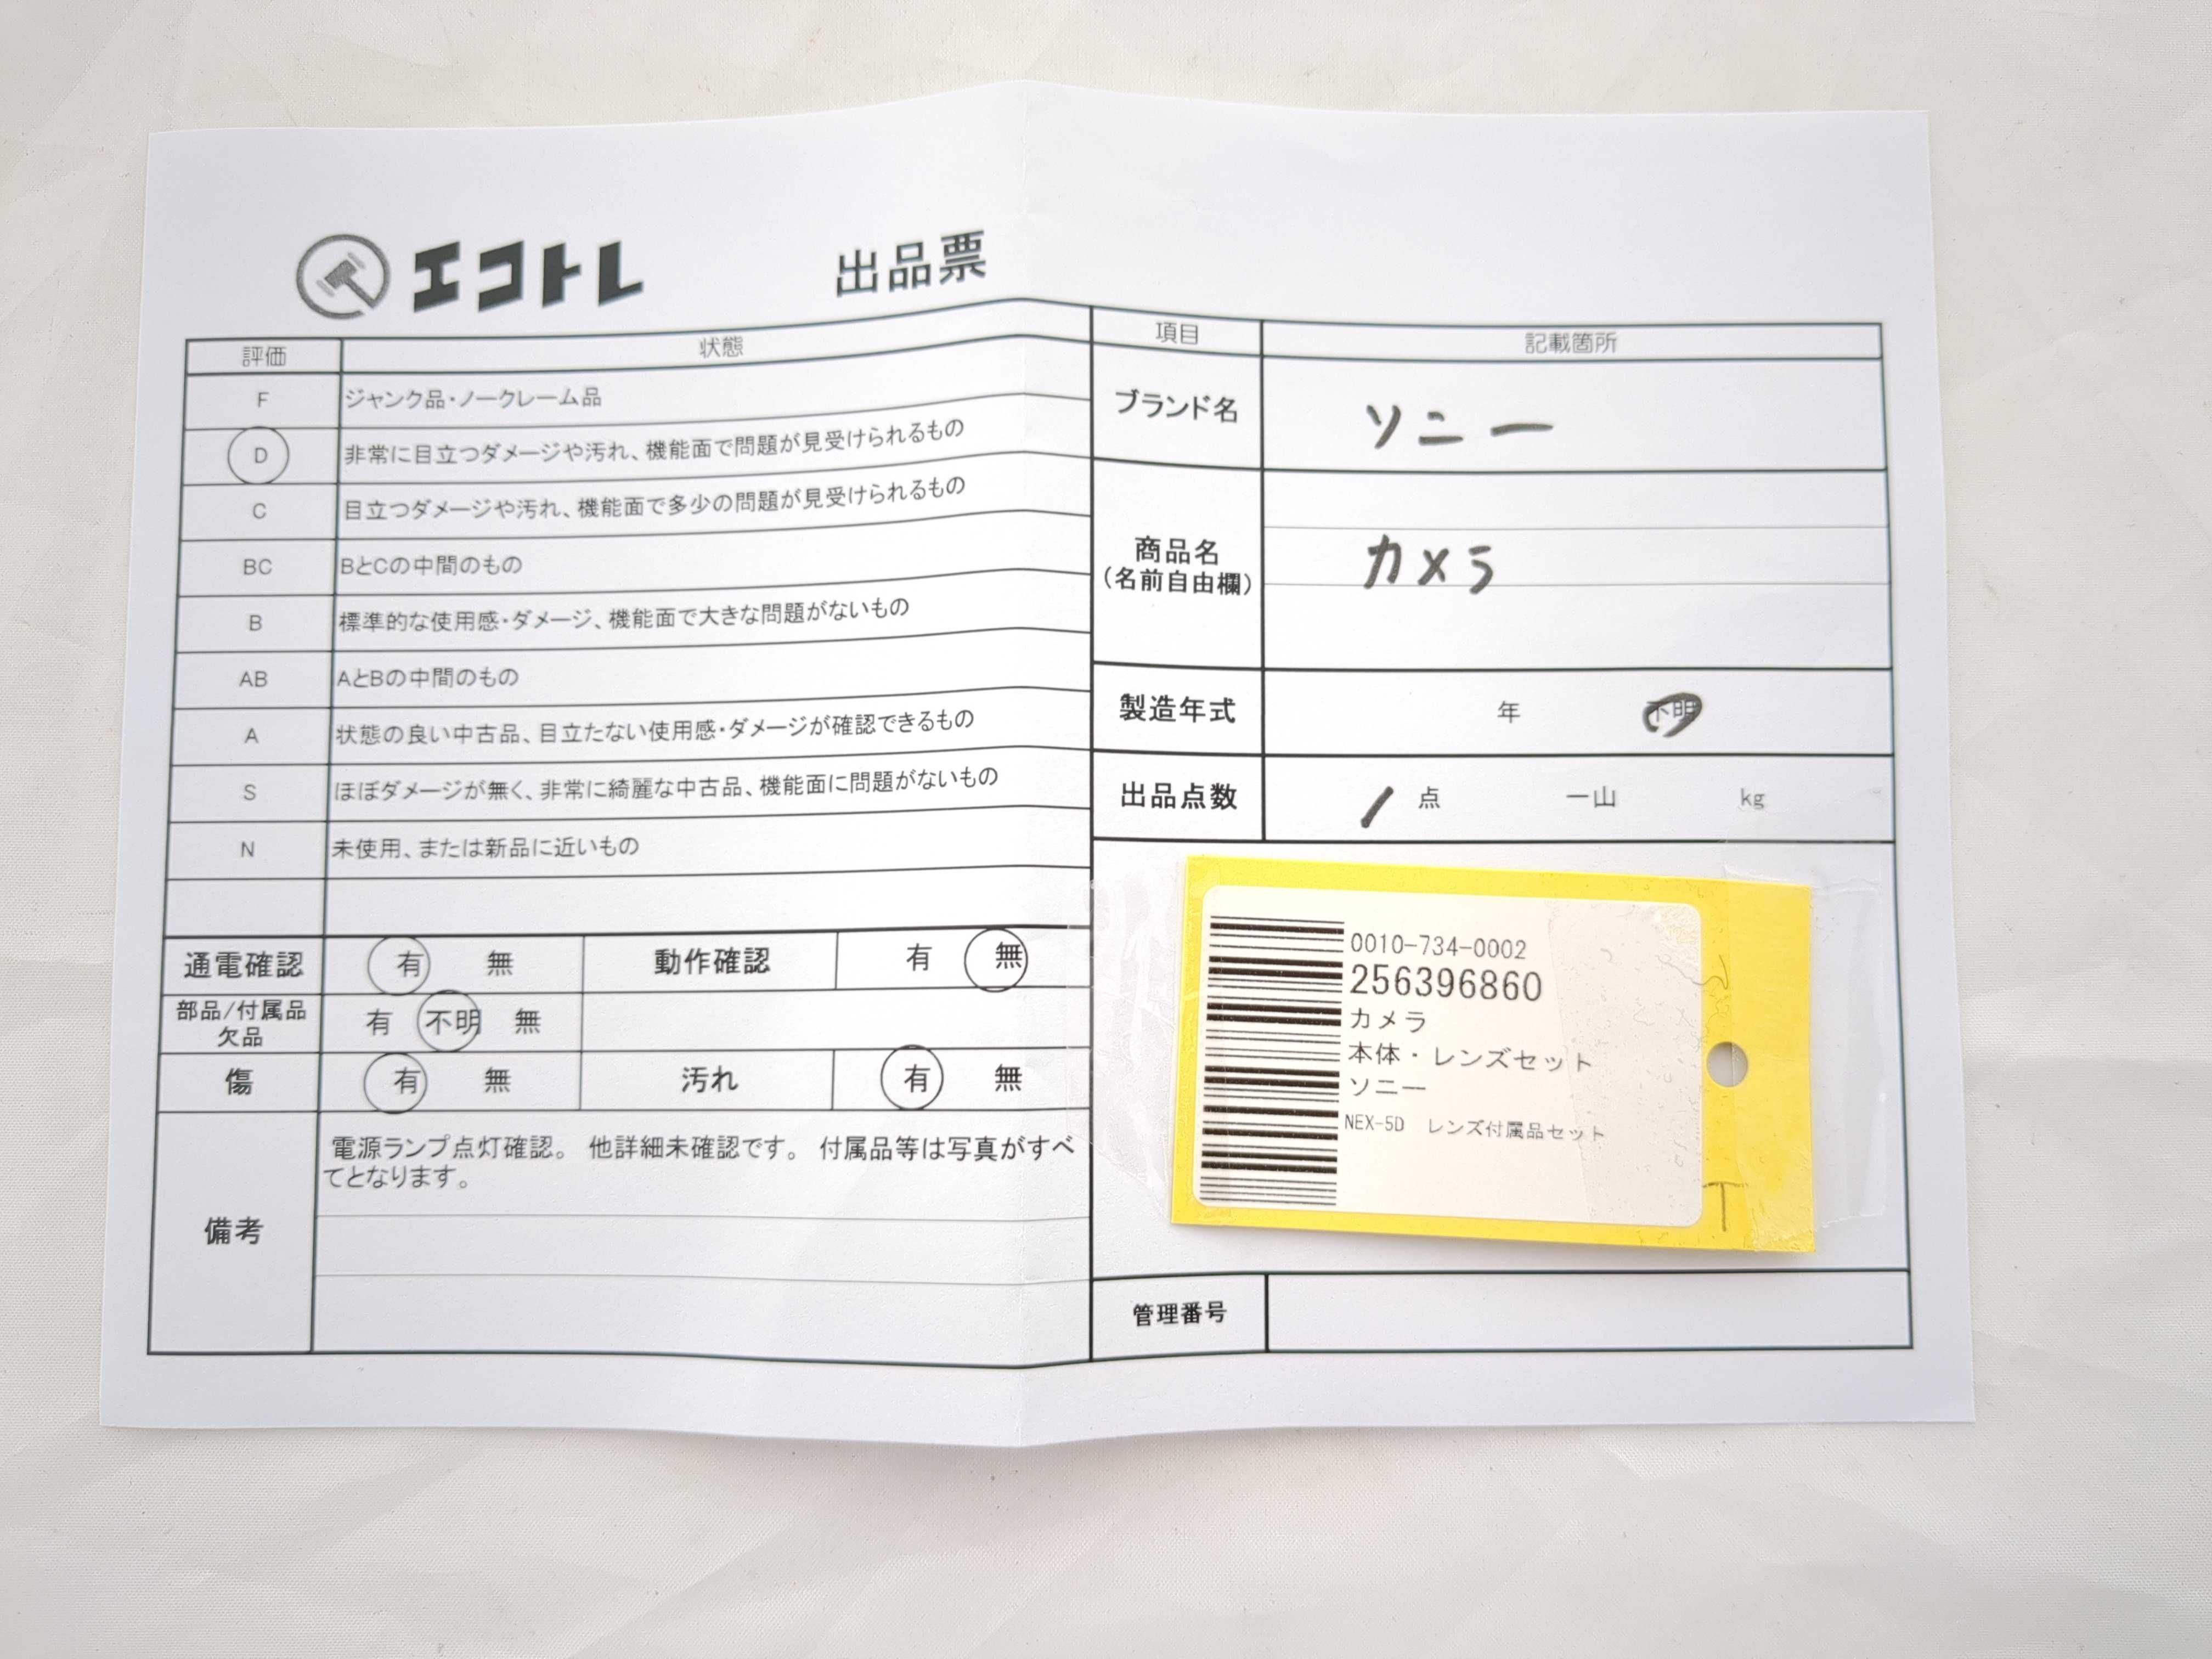 エコトレ 出品票
評価 状態
F ジャンク品・ノークレーム品
D 非常に目立つダメージや汚れ、機能面で問題が見受けられるもの
C 目立つダメージや汚れ、機能面で多少の問題が見受けられるもの
BC BとCの中間のもの
B 標準的な使用感・ダメージ、機能面で大きな問題がないもの
AB AとBの中間のもの
A 状態の良い中古品、目立たない使用感・ダメージが確認できるもの
S ほぼダメージが無く、非常に綺麗な中古品、機能面に問題がないもの
N 未使用、または新品に近いもの
通電確認 有 無 動作確認 有 無
部品/付属品
欠品 有 不明 無
傷 有 無 汚れ 有 無
備考
電源ランプ点灯確認。 他詳細未確認です。 付属品等は写真がすべ
てとなります。
項目 記載箇所
ブランド名 ソニー
商品名
(名前自由欄) カメラ
製造年式 年 不明
出品点数 1 点 一山 kg
0010-734-0002
256396860
カメラ
本体・レンズセット
ソニー
NEX-5D レンズ付属品セット
T
管理番号